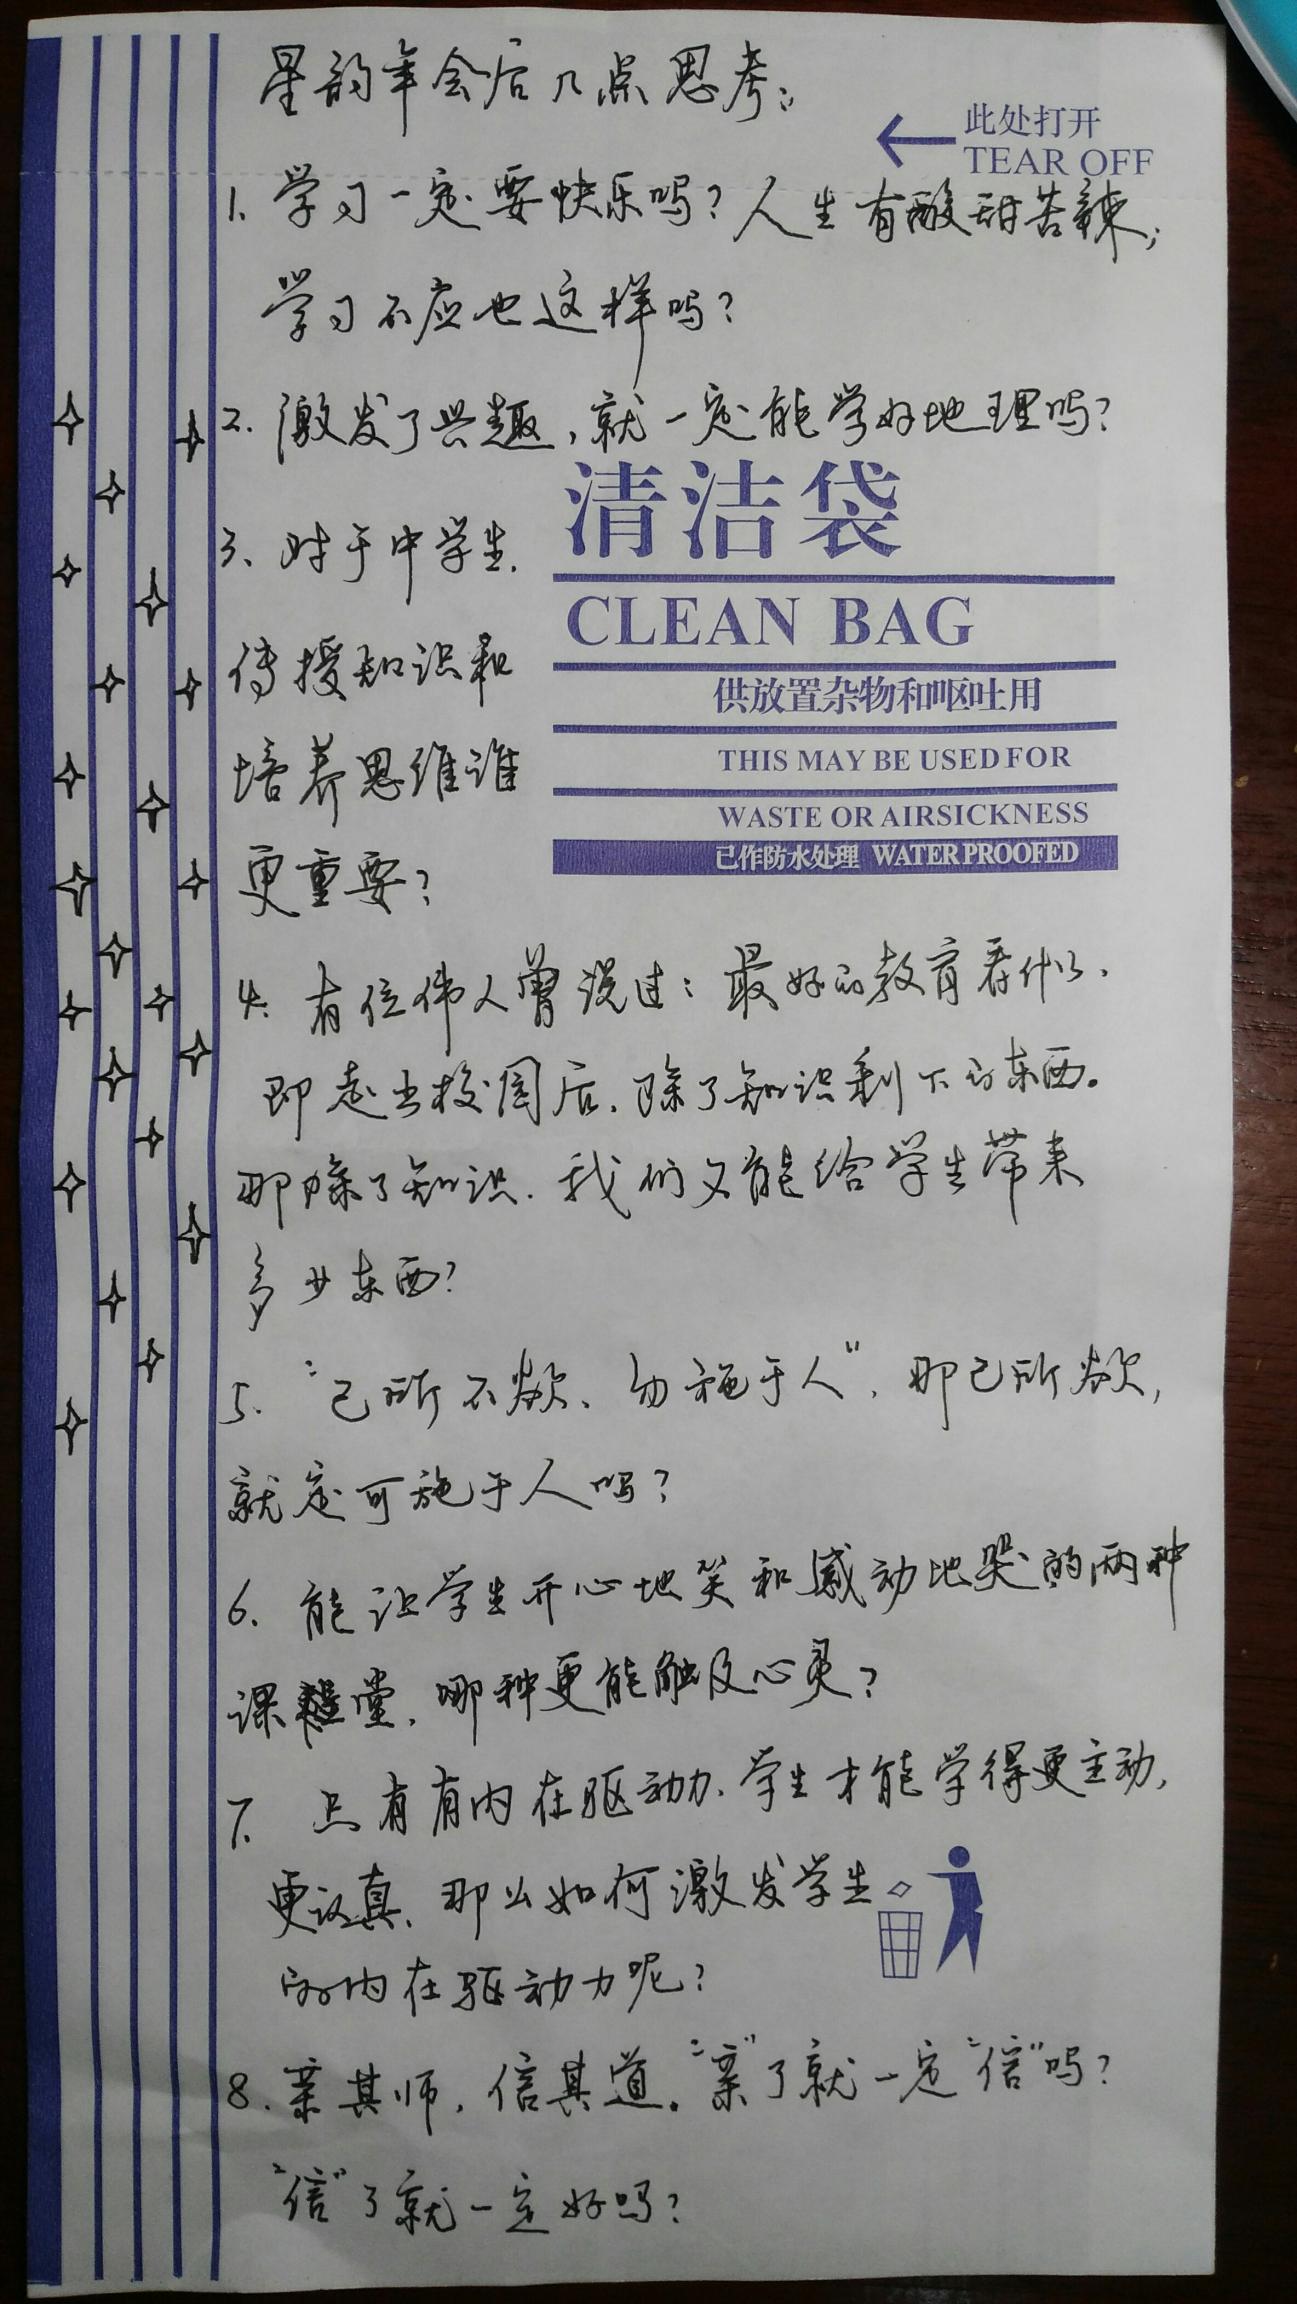 星韵年会后几点思考：
此处打开
TEAR OFF
1. 学习一定要快乐吗？人生有酸甜苦辣，
学习不应也这样吗？
2. 激发了兴趣，就一定能学好地理吗？
清洁袋
CLEAN BAG
供放置杂物和呕吐用
THIS MAY BE USED FOR
WASTE OR AIRSICKNESS
已作防水处理 WATERPROOFED
3. 对于中学生，
传授知识和
培养思维谁
更重要？
4. 有位伟人曾说过：最好的教育看什么，
即走出校园后，除了知识剩下的东西。
那除了知识，我们又能给学生带来
多少东西？
5. “己所不欲、勿施于人”，那己所欲，
就定可施于人吗？
6. 能让学生开心地笑和感动地哭的两种
课堂，哪种更能触及心灵？
7. 只有有内在驱动力，学生才能学得更主动，
更认真，那么如何激发学生
的内在驱动力呢？
8. 亲其师，信其道。“亲”了就一定“信”吗？
“信”了就一定好吗？